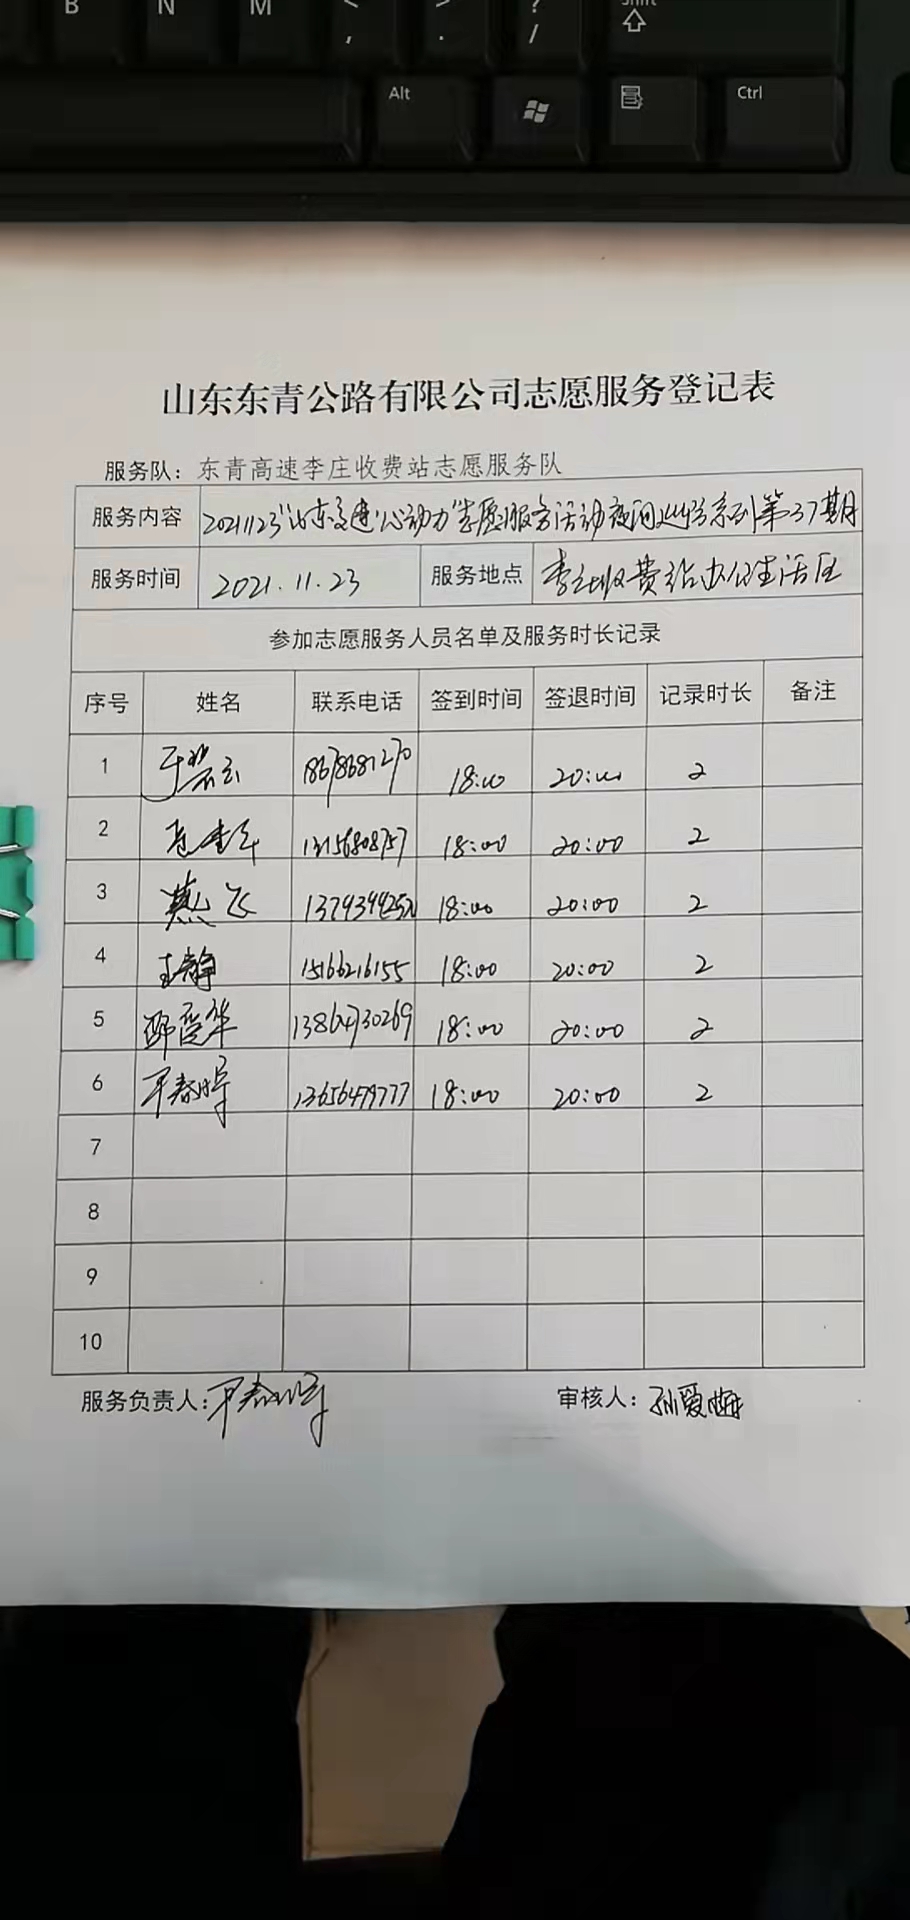 B N M < , > . ? / Shift
Alt Ctrl
山东东青公路有限公司志愿服务登记表
服务队：东青高速李庄收费站志愿服务队
服务内容 20211123"山东高速 心动力"志愿服务活动夜间巡逻系列第37期
服务时间 2021.11.23 服务地点 李庄收费站办公生活区
参加志愿服务人员名单及服务时长记录
序号 姓名 联系电话 签到时间 签退时间 记录时长 备注
1 18678681270 18:00 20:00 2
2 18:00 20:00 2
3 燕飞 18:00 20:00 2
4 王静 15166216155 18:00 20:00 2
5 13864730269 18:00 20:00 2
6 13656479777 18:00 20:00 2
7
8
9
10
服务负责人： 审核人：孙爱梅